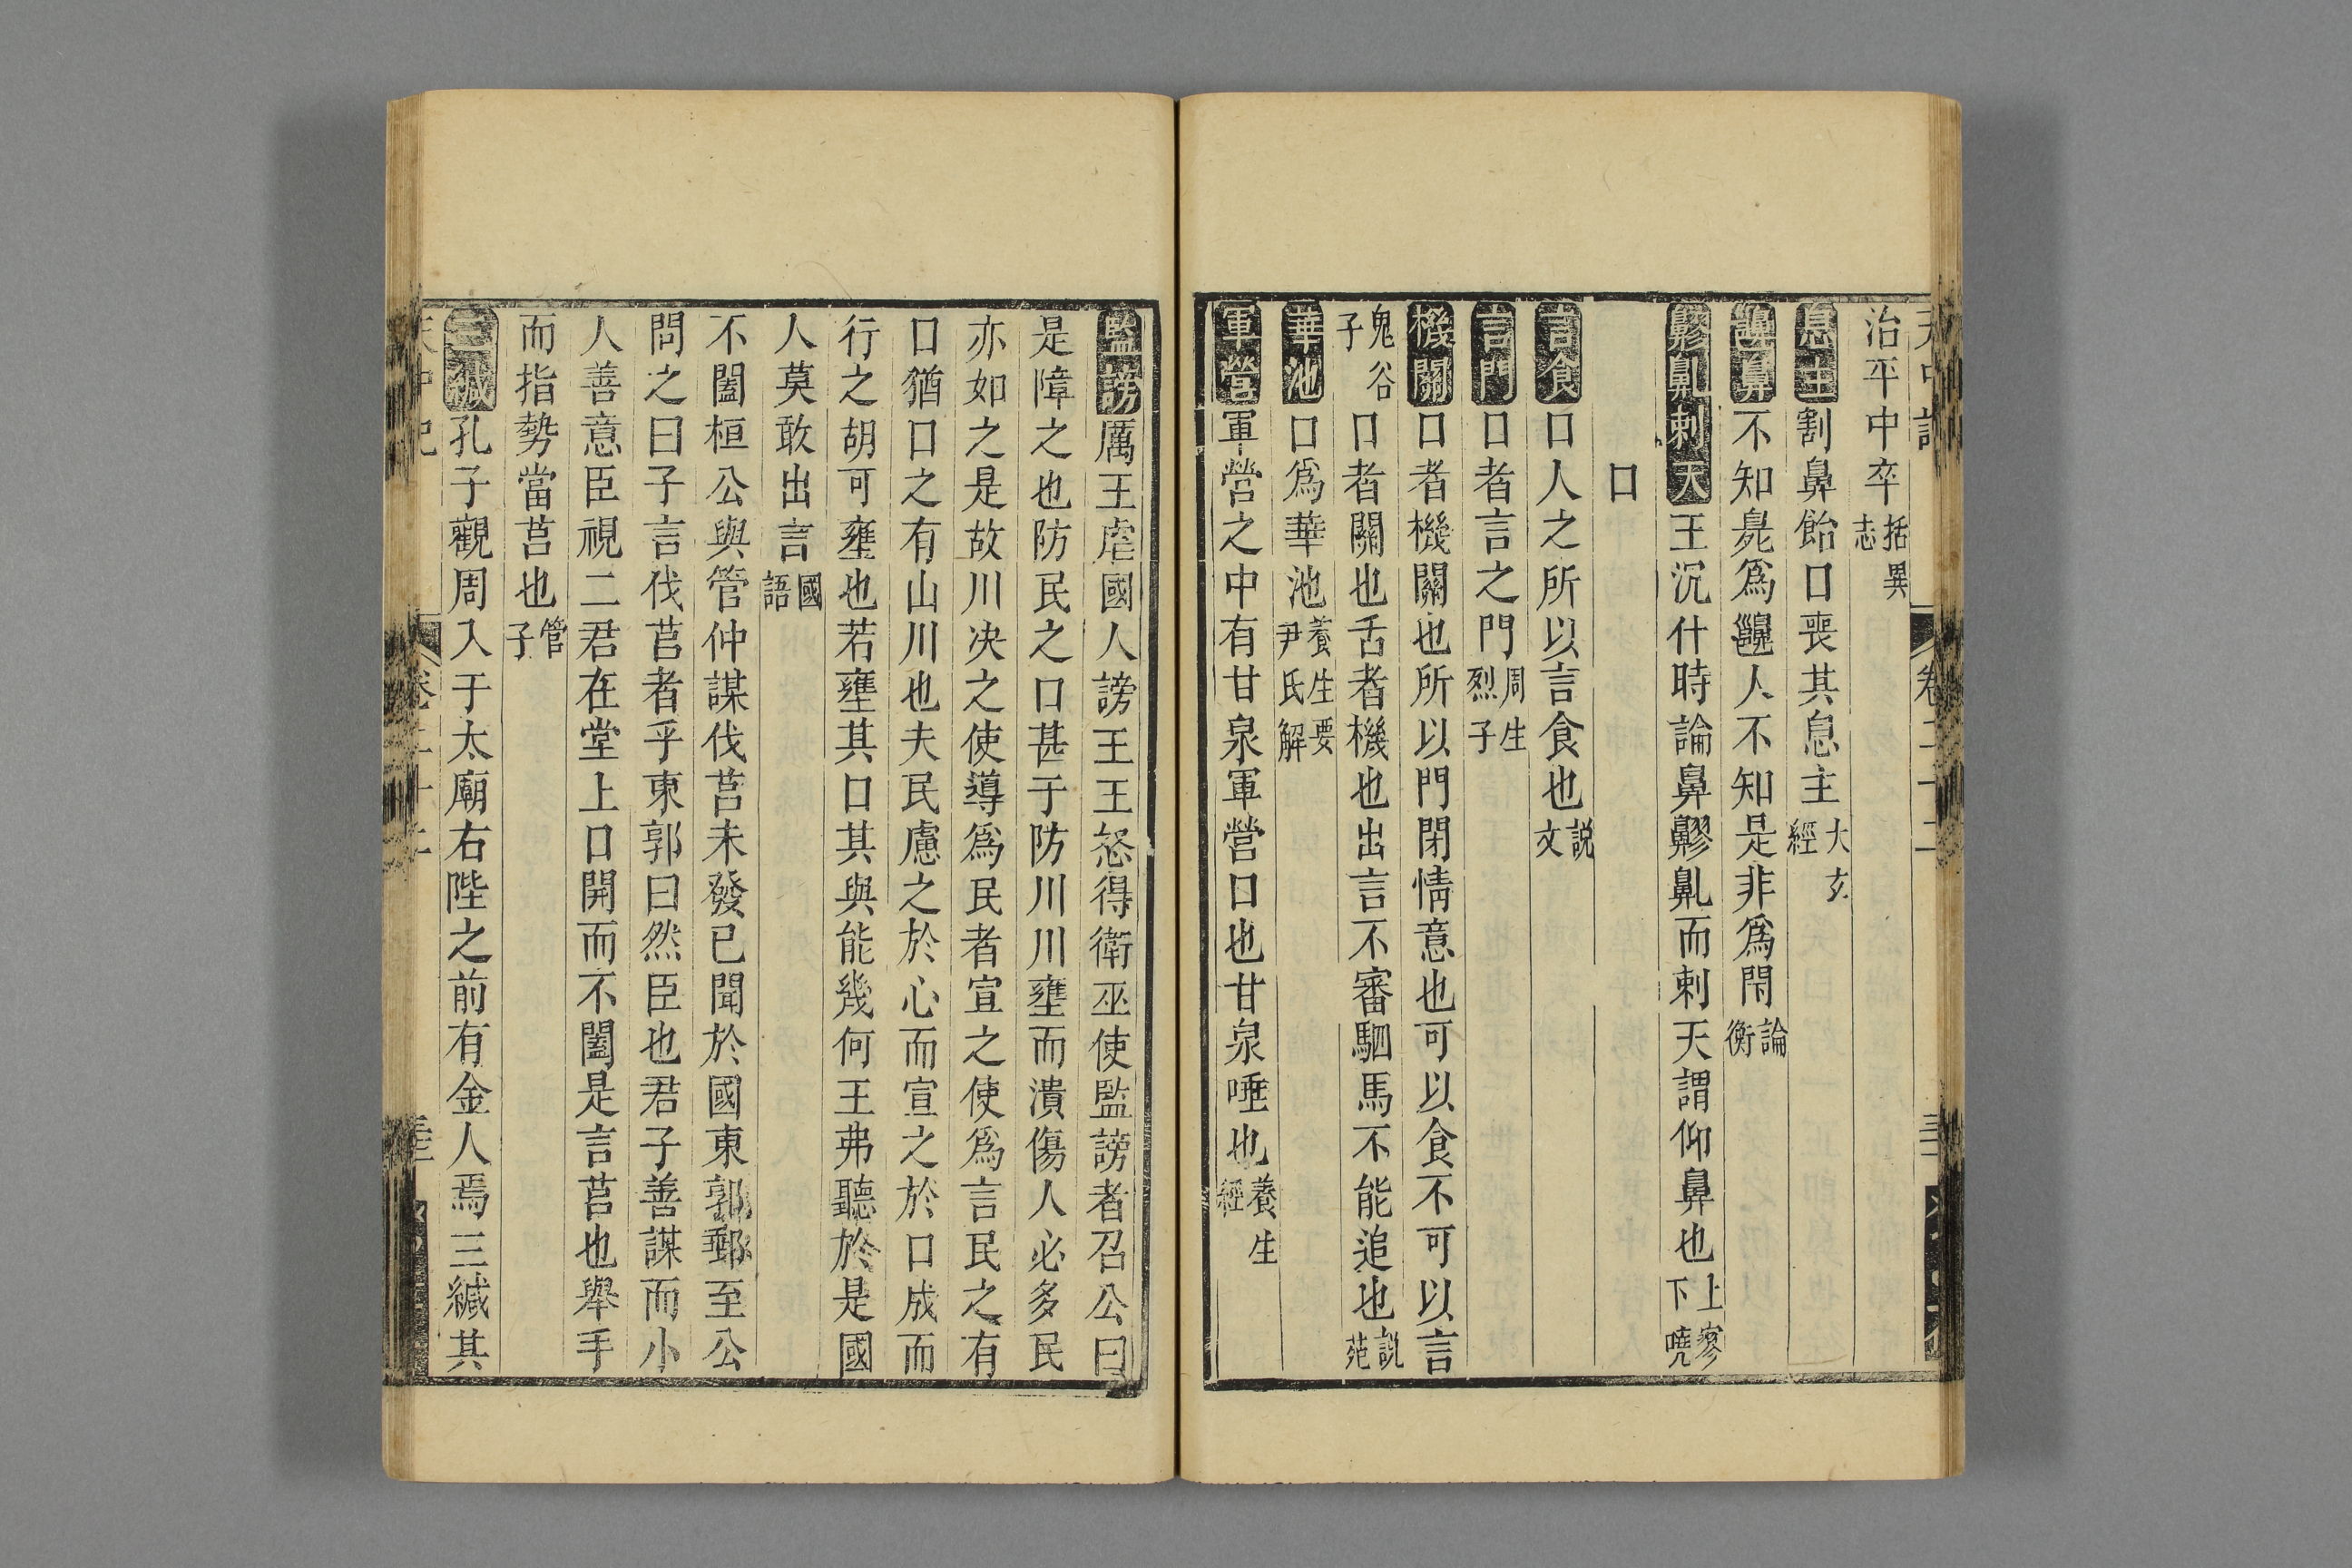 治平中卒括異志
息主割鼻飴口喪其息主大玄經
不知臭爲人不知是非爲閉論衡
鼻刺天王沉什時論鼻而刺天謂仰鼻也上寥下嘵
口
言食口人之所以言食也説文
言門口者言之門周生烈子
機關口者機關也所以門閉情意也可以食不可以言
鬼谷子口者關也舌者機也出言不審駟馬不能追也説苑
華池口爲華池養生要尹氏解
軍營軍營之中有甘泉軍營口也甘泉唾也養生經
監謗厲王虐國人謗王王怒得衛巫使監謗者召公曰
是障之也防民之口甚于防川川壅而潰傷人必多民
亦如之是故川决之使導爲民者宣之使爲言民之有
口猶口之有山川也夫民慮之於心而宣之於口成而
行之胡可壅也若壅其口其與能幾何王弗聽於是國
人莫敢出言國語
不闔桓公與管仲謀伐莒未發已聞於國東郭郵至公
問之曰子言伐莒者乎東郭曰然臣也君子善謀而小
人善意臣視二君在堂上口開而不闔是言莒也舉手
而指勢當莒也管子
三緘孔子觀周入于太廟右陛之前有金人焉三緘其